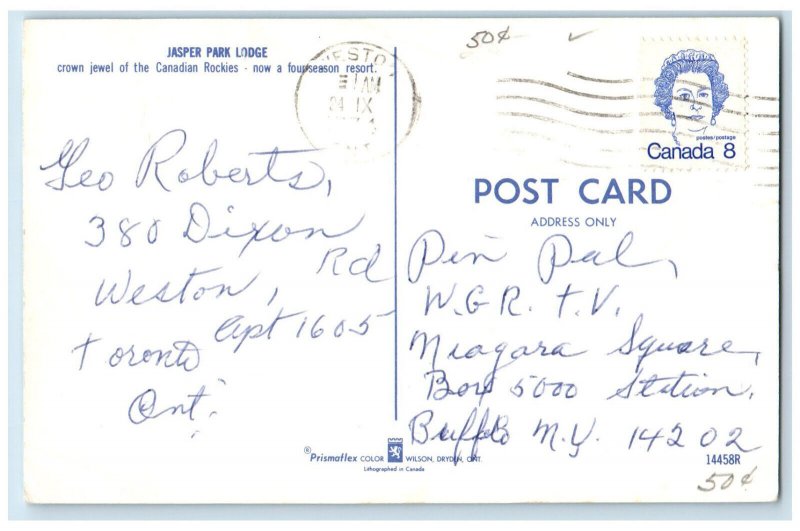 JASPER PARK LODGE
crown jewel of the Canadian Rockies - now a four season resort.
50¢
WESTON
AM
IX
postes/postage
Canada 8
POST CARD
ADDRESS ONLY
Geo Roberts,
380 Dixon
Rd
Weston,
Apt 1605
Toronto
Ont.
Pen Pal,
W.G.R. T.V.
Niagara Square,
Box 5000 Station,
Buffalo N.Y. 14202
®Prismaflex COLOR WILSON, DRYDEN, ONT.
Lithographed in Canada
14458R
50¢